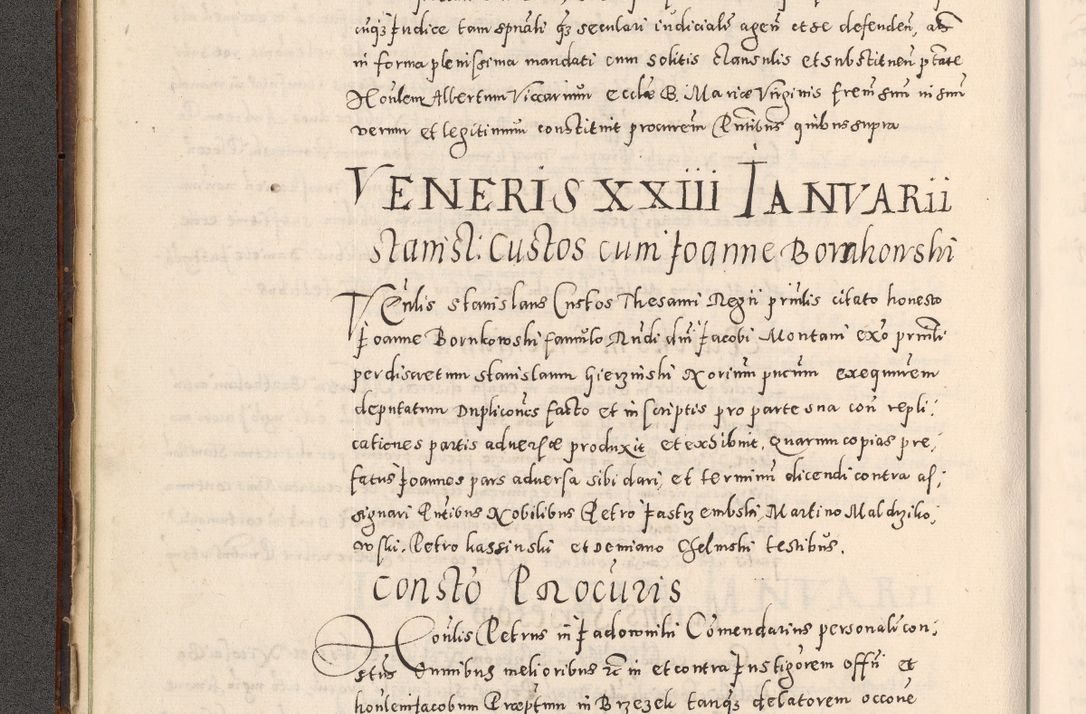 cuqz Judice tam spũali qz seculari iudicialr agen et se defenden, ac
in forma plenissima mandati cum solitis clausulis et substituen ptate
Honlem Albertum Viccarium eccłæ B. Mariæ Virginis frem suu ni suu
verum et legitimum constituit procurem Pntibus quibus supra
VENERIS XXIII IANVARii
Stanisl: Custos cum Joanne Bornkowski
Venlis Stanislaus Custos Thesauri Regii prnlis citato honesto
Joanne Bornkowski famulo Nudi dni Jacobi Montani exo prnti
per discretum Stanislaum Gierzinski Norium pucum exequurem
deputatum Duplicones facto et in scriptis pro parte sua con repli:
cationes partis adversæ produxit et exhibuit. Quarum copias pre:
fatus Joannes pars adversa sibi dari, et terminu dicendi contra as:
signari Pntibus Nobilibus Petro Jastrzembski Martino Maldziko:
wski. Petro Kassinski et Demiano Chelmski testibus.
Consto Procuris
Honlis Petrus in Jadowniki Comendarius personalr con:
stus Omnibus melioribus zc in et contra Instigorem offii et
honlem Jacobum Præptum in Brzezek tanqz delatorem occone